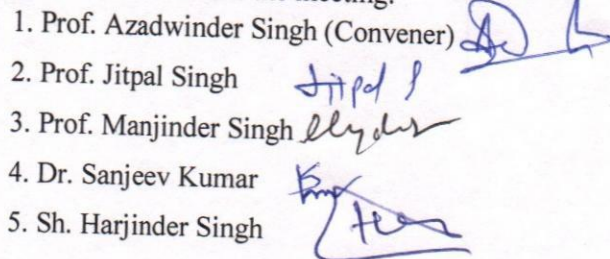 meeting.
1. Prof. Azadwinder Singh (Convener)
2. Prof. Jitpal Singh Jitpal S
3. Prof. Manjinder Singh
4. Dr. Sanjeev Kumar
5. Sh. Harjinder Singh